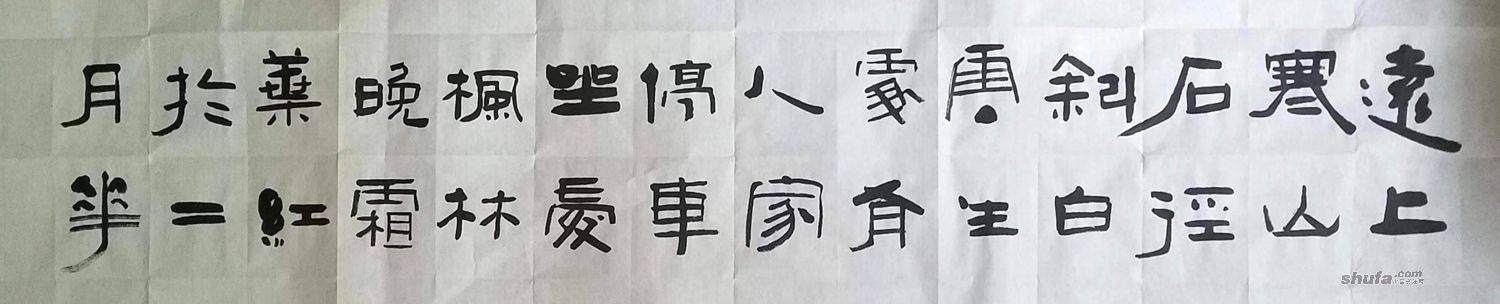 遠上
寒山
石徑
斜白
雲生
處有
人家
停車
坐愛
楓林
晚霜
葉紅
於二
月華
shufa.com